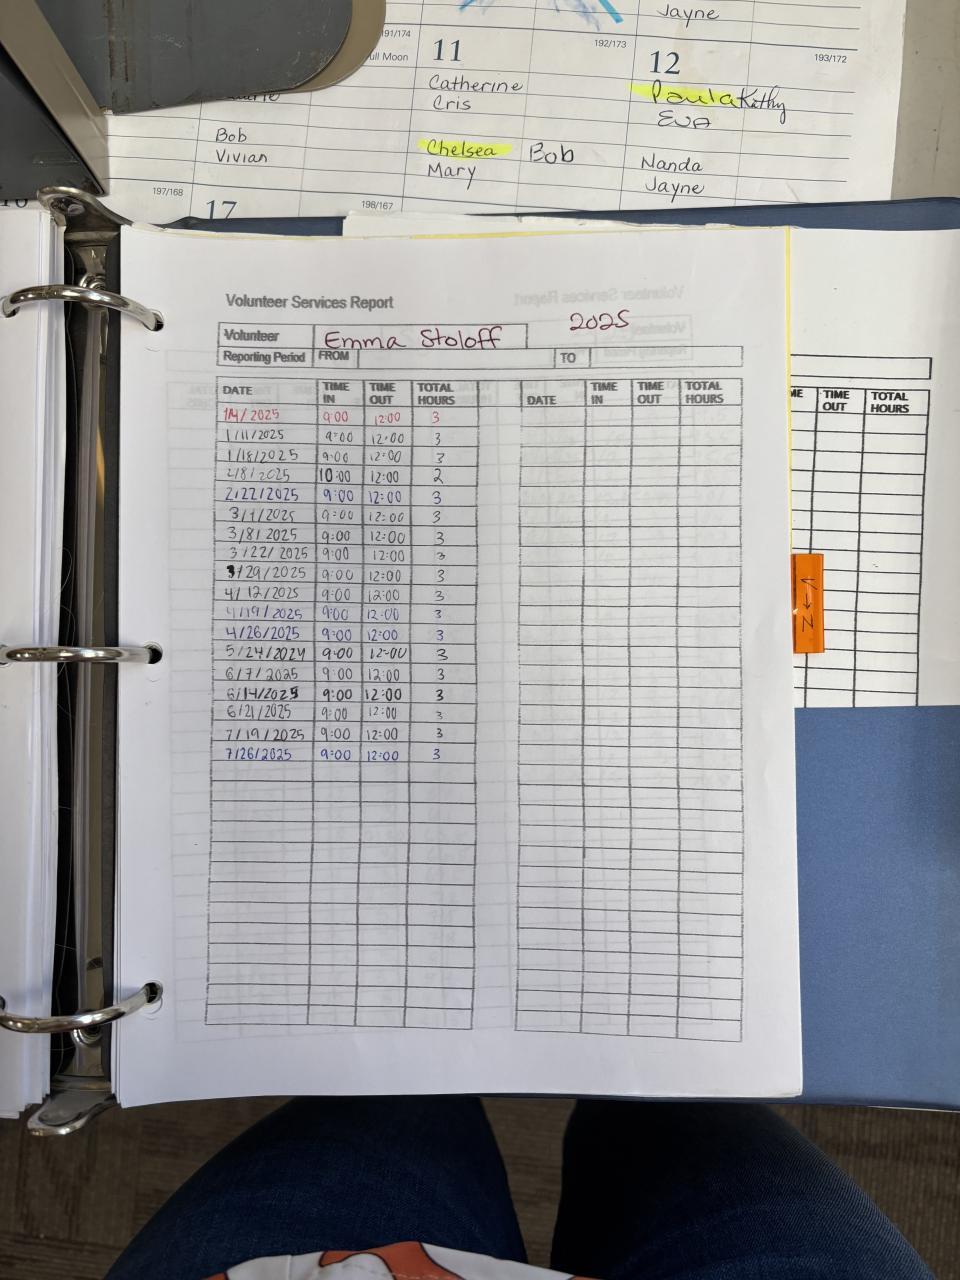 Jayne
191/174
ull Moon
11
192/173
12
193/172
Catherine
Cris
Paula Kathy
EVA
Bob
Vivian
Chelsea Bob
Mary
Nanda
Jayne
197/168
17
198/167
Volunteer Services Report
Volunteer Emma Stoloff 2025
Reporting Period FROM TO
DATE TIME IN TIME OUT TOTAL HOURS DATE TIME IN TIME OUT TOTAL HOURS
1/4/2025 9:00 12:00 3
1/11/2025 9:00 12:00 3
1/18/2025 9:00 12:00 3
2/8/2025 10:00 12:00 2
2/22/2025 9:00 12:00 3
3/1/2025 9:00 12:00 3
3/8/2025 9:00 12:00 3
3/22/2025 9:00 12:00 3
3/29/2025 9:00 12:00 3
4/12/2025 9:00 12:00 3
4/19/2025 9:00 12:00 3
4/26/2025 9:00 12:00 3
5/24/2024 9:00 12:00 3
6/7/2025 9:00 12:00 3
6/14/2025 9:00 12:00 3
6/21/2025 9:00 12:00 3
7/19/2025 9:00 12:00 3
7/26/2025 9:00 12:00 3
ME TIME OUT TOTAL HOURS